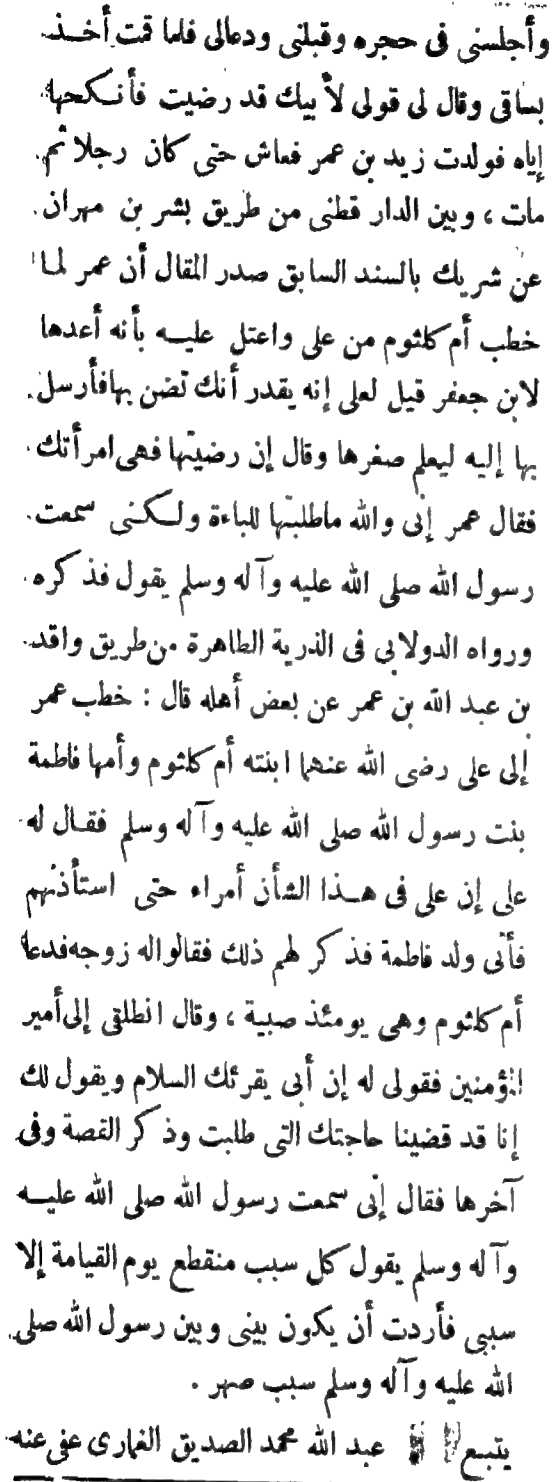 وأجلسنى فى حجره وقبلنى ودعالى فلما قمت أخذ
بساقى وقال لى قولى لأبيك قد رضيت فأنكحها
إياه فولدت زيد بن عمر فعاش حتى كان رجلا ثم
مات ، وبين الدار قطنى من طريق بشر بن مهران
عن شريك بالسند السابق صدر المقال أن عمر لما
خطب أم كلثوم من على واعتل عليه بأنه أعدها
لابن جعفر قيل لعلى إنه يقدر أنك تضن بها فأرسل
بها إليه ليعلم صغرها وقال إن رضيتها فهى امرأتك
فقال عمر إنى والله ماطلبتها للباءة ولكنى سمعت
رسول الله صلى الله عليه وآله وسلم يقول فذكره
ورواه الدولابى فى الذرية الطاهرة من طريق واقد
بن عبد الله بن عمر عن بعض أهله قال : خطب عمر
إلى على رضى الله عنهما ابنته أم كلثوم وأمها فاطمة
بنت رسول الله صلى الله عليه وآله وسلم فقال له
على إن على فى هذا الشأن أمراء حتى استأذنهم
فأتى ولد فاطمة فذكر لهم ذلك فقالواله زوجه فدعا
أم كلثوم وهى يومئذ صبية ، وقال انطلقى إلى أمير
المؤمنين فقولى له إن أبى يقرئك السلام ويقول لك
إنا قد قضينا حاجتك التى طلبت وذكر القصة وفى
آخرها فقال إنى سمعت رسول الله صلى الله عليه
وآله وسلم يقول كل سبب منقطع يوم القيامة إلا
سببى فأردت أن يكون بينى وبين رسول الله صلى
الله عليه وآله وسلم سبب صهر .
يتبع عبد الله محمد الصديق الغمارى عفى عنه